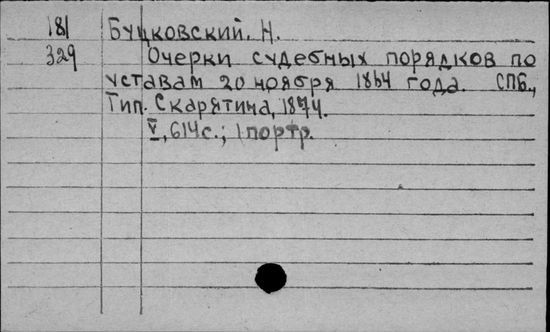 181 Буцковский, Н.
329 Очерки судебных порядков по
уставам 20 ноября 1864 года. СПБ.,
Тип. Скарятина, 1874.
V, 614 с.; 1 портр.